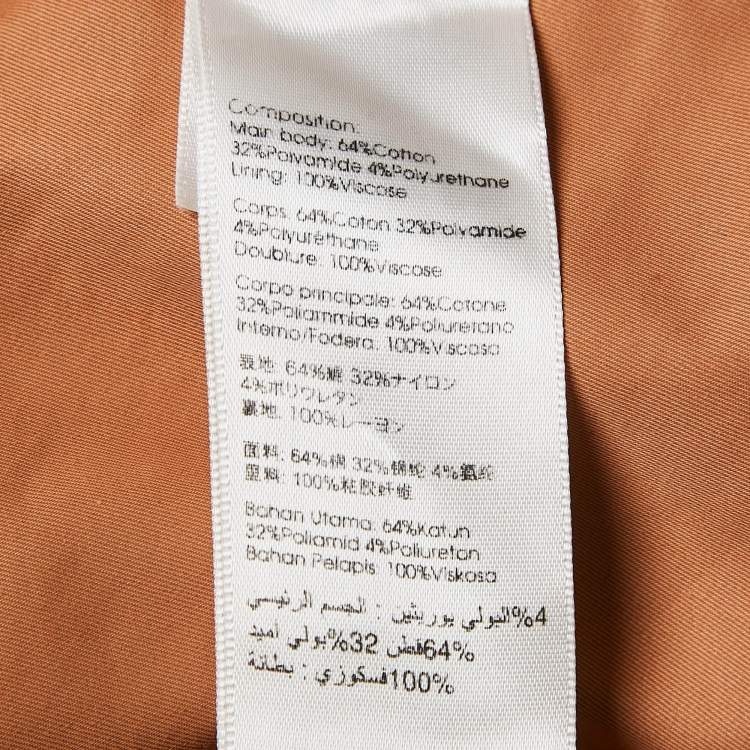 Composition:
Main body: 64%Cotton
32%Polyamide 4%Polyurethane
Lining: 100%Viscose
Corps: 64%Coton 32%Polyamide
4%Polyuréthane
Doublure: 100%Viscose
Corpo principale: 64%Cotone
32%Poliammide 4%Poliuretano
Interno/Fodera: 100%Viscosa
表地: 64%綿 32%ナイロン
4%ポリウレタン
裏地: 100%レーヨン
面料: 64%棉 32%锦纶 4%氨纶
里料: 100%粘胶纤维
Bahan Utama: 64%Katun
32%Poliamid 4%Poliuretan
Bahan Pelapis: 100%Viskosa
4%البولي يوريثين : الجسم الرئيسي
64%قطن 32%بولي أميد
100%فسكوزي : بطانة